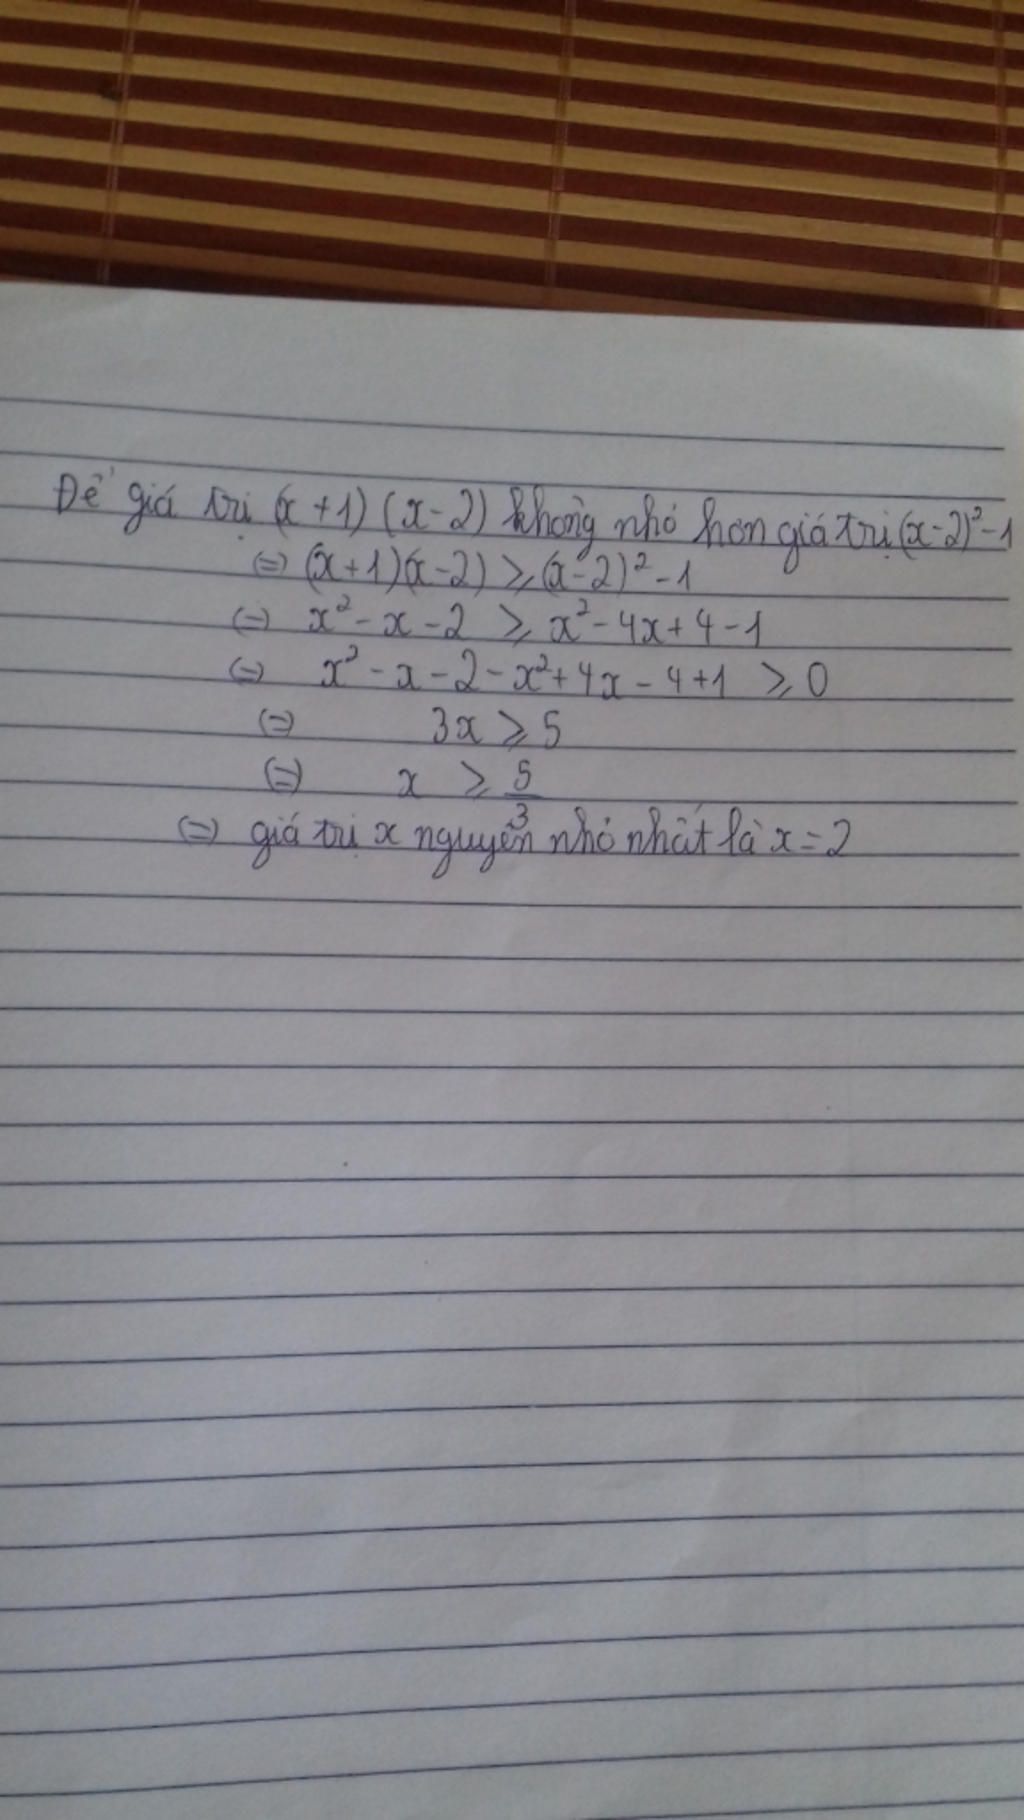 Để giá trị (x+1)(x-2) không nhỏ hơn giá trị (x-2)²-1
(=) (x+1)(x-2) ≥ (x-2)² -1
(=) x² - x - 2 ≥ x² - 4x + 4 - 1
(=) x² - x - 2 - x² + 4x - 4 + 1 ≥ 0
(=) 3x ≥ 5
(=) x ≥ 5/3
(=) giá trị x nguyên nhỏ nhất là x = 2